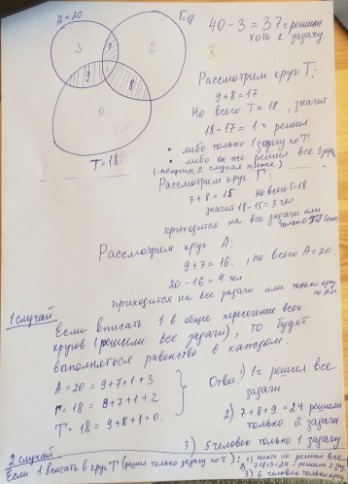 A = 20
Г=18
3
7
2
9
8
0.
T = 18.
40 - 3 = 37 = решили
хоть 1 задачу
Рассмотрим круг Т:
9 + 8 = 17.
Но всего Т = 18, значит
18 - 17 = 1 = решил
• либо только 1 задачу по Т
• либо он же решил все 3
Рассмотрим круг Г:
7 + 8 = 15. Но всего Г=18
значит 18 - 15 = 3 чел.
приходится на все задачи или
только
Рассмотрим круг А:
9 + 7 = 16. , но всего А = 20.
20 - 16 = 4 чел
приходится на все задачи или только одну
1 случай
Если вписать 1 в общее пересечение всех
кругов (решили все задачи), то будет
выполняться равенство в каждом.
A = 20 = 9 + 7 + 1 + 3
Г = 18 = 8 + 7 + 1 + 2
T = 18 = 9 + 8 + 1 + 0.
Ответ: 1) 1 решил все
задачи
2) 7 + 8 + 9 = 24 решили
только 2 задачи
3) 5 человек только 1 задачу
2 случай
Если 1 вписать в круг Т (решил только задачу по Т): 1) никто не решил все
2) 7+8+9=24 - решили 2
3) 6 человек только одну